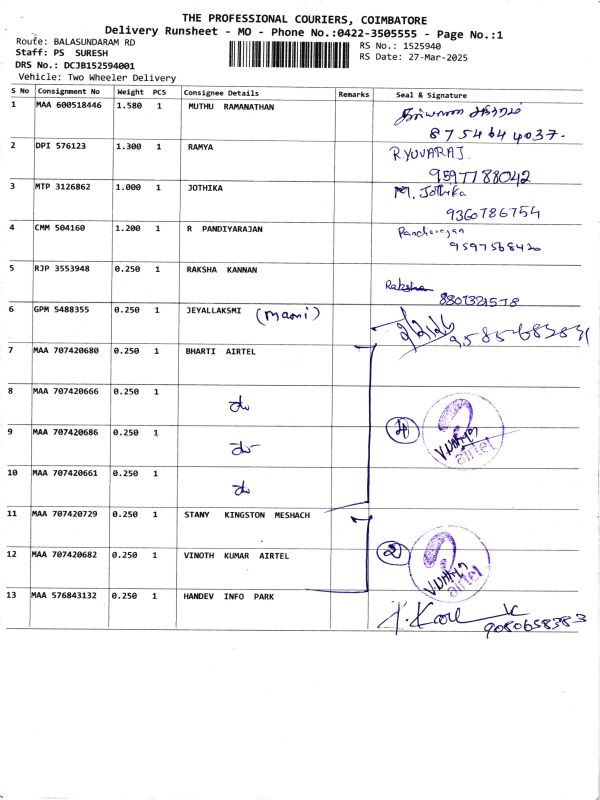 THE PROFESSIONAL COURIERS, COIMBATORE
Delivery Runsheet - MO - Phone No.:0422-3505555 - Page No.:1
Route: BALASUNDARAM RD RS No.: 1525940
Staff: PS SURESH RS Date: 27-Mar-2025
DRS No.: DCJB152594001
Vehicle: Two Wheeler Delivery
S No Consignment No Weight PCS Consignee Details Remarks Seal & Signature
1 MAA 600518446 1.580 1 MUTHU RAMANATHAN
8754644037.
2 DPI 576123 1.300 1 RAMYA R.YUVARAJ.
9597788042
3 MTP 3126862 1.000 1 JOTHIKA M. Jothika
9360786754
4 CMM 504160 1.200 1 R PANDIYARAJAN Pandiarajan
9597568420
5 RJP 3553948 0.250 1 RAKSHA KANNAN Raksha
8807321578
6 GPM 5488355 0.250 1 JEYALLAKSMI (Mami)
7 MAA 707420680 0.250 1 BHARTI AIRTEL
8 MAA 707420666 0.250 1 do
9 MAA 707420686 0.250 1 do airtel
10 MAA 707420661 0.250 1 do
11 MAA 707420729 0.250 1 STANY KINGSTON MESHACH
12 MAA 707420682 0.250 1 VINOTH KUMAR AIRTEL 2 airtel
13 MAA 576843132 0.250 1 HANDEV INFO PARK
9080658383